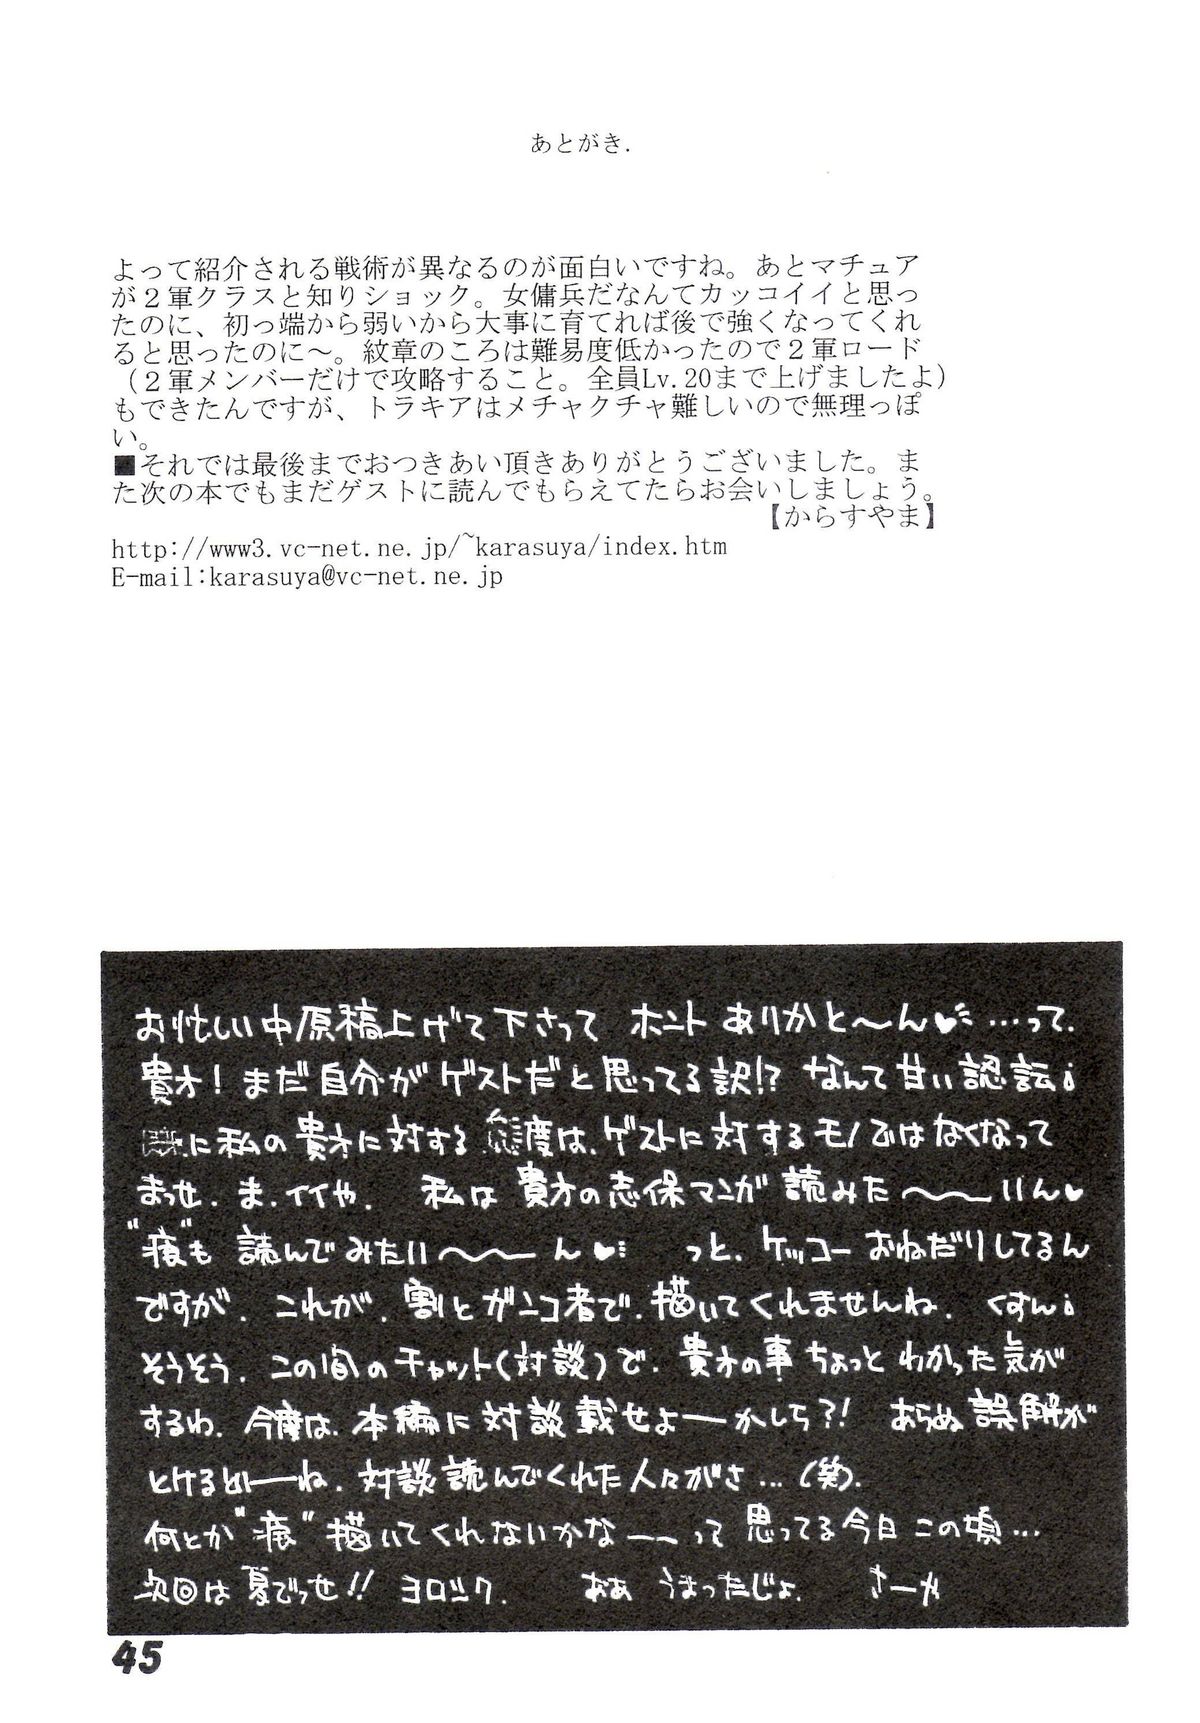 あとがき.
よって紹介される戦術が異なるのが面白いですね。あとマチュア
が２軍クラスと知りショック。女傭兵だなんてカッコイイと思っ
たのに、初っ端から弱いから大事に育てれば後で強くなってくれ
ると思ったのに～。紋章のころは難易度低かったので２軍ロード
（２軍メンバーだけで攻略すること。全員Lv.20まで上げましたよ）
もできたんですが、トラキアはメチャクチャ難しいので無理っぽ
い。
■それでは最後までおつきあい頂きありがとうございました。ま
た次の本でもまだゲストに読んでもらえてたらお会いしましょう。
【からすやま】
http://www3.vc-net.ne.jp/~karasuya/index.htm
E-mail:karasuya@vc-net.ne.jp
お忙しい中原稿上げて下さって ホントありがと〜ん♥…って.
貴方！まだ自分がゲストだと思ってる訳!? なんて甘い認識¡
に私の貴方に対する態度は、ゲストに対するモノではなくなって
まっせ. ま、イイや. 私は貴方の志保マンガ読みた〜〜いん♥
"痕"も 読んでみたい〜〜ん♥ っと、ケッコーおねだりしてるん
ですが、これが、割とガンコ者で、描いてくれませんね. くすん¡
そうそう、この間のチャット(対談)で、貴方の事ちょっとわかった気が
するわ. 今度は、本編に対談載せよーかしら?! あらぬ誤解が
とけるどーね. 対談読んでくれた人々がさ…(笑).
何とか"痕"描いてくれないかな〜って思ってる今日この頃…
次回は夏でっせ!! ヨロシク. おあ うまったじょ. さーや
45